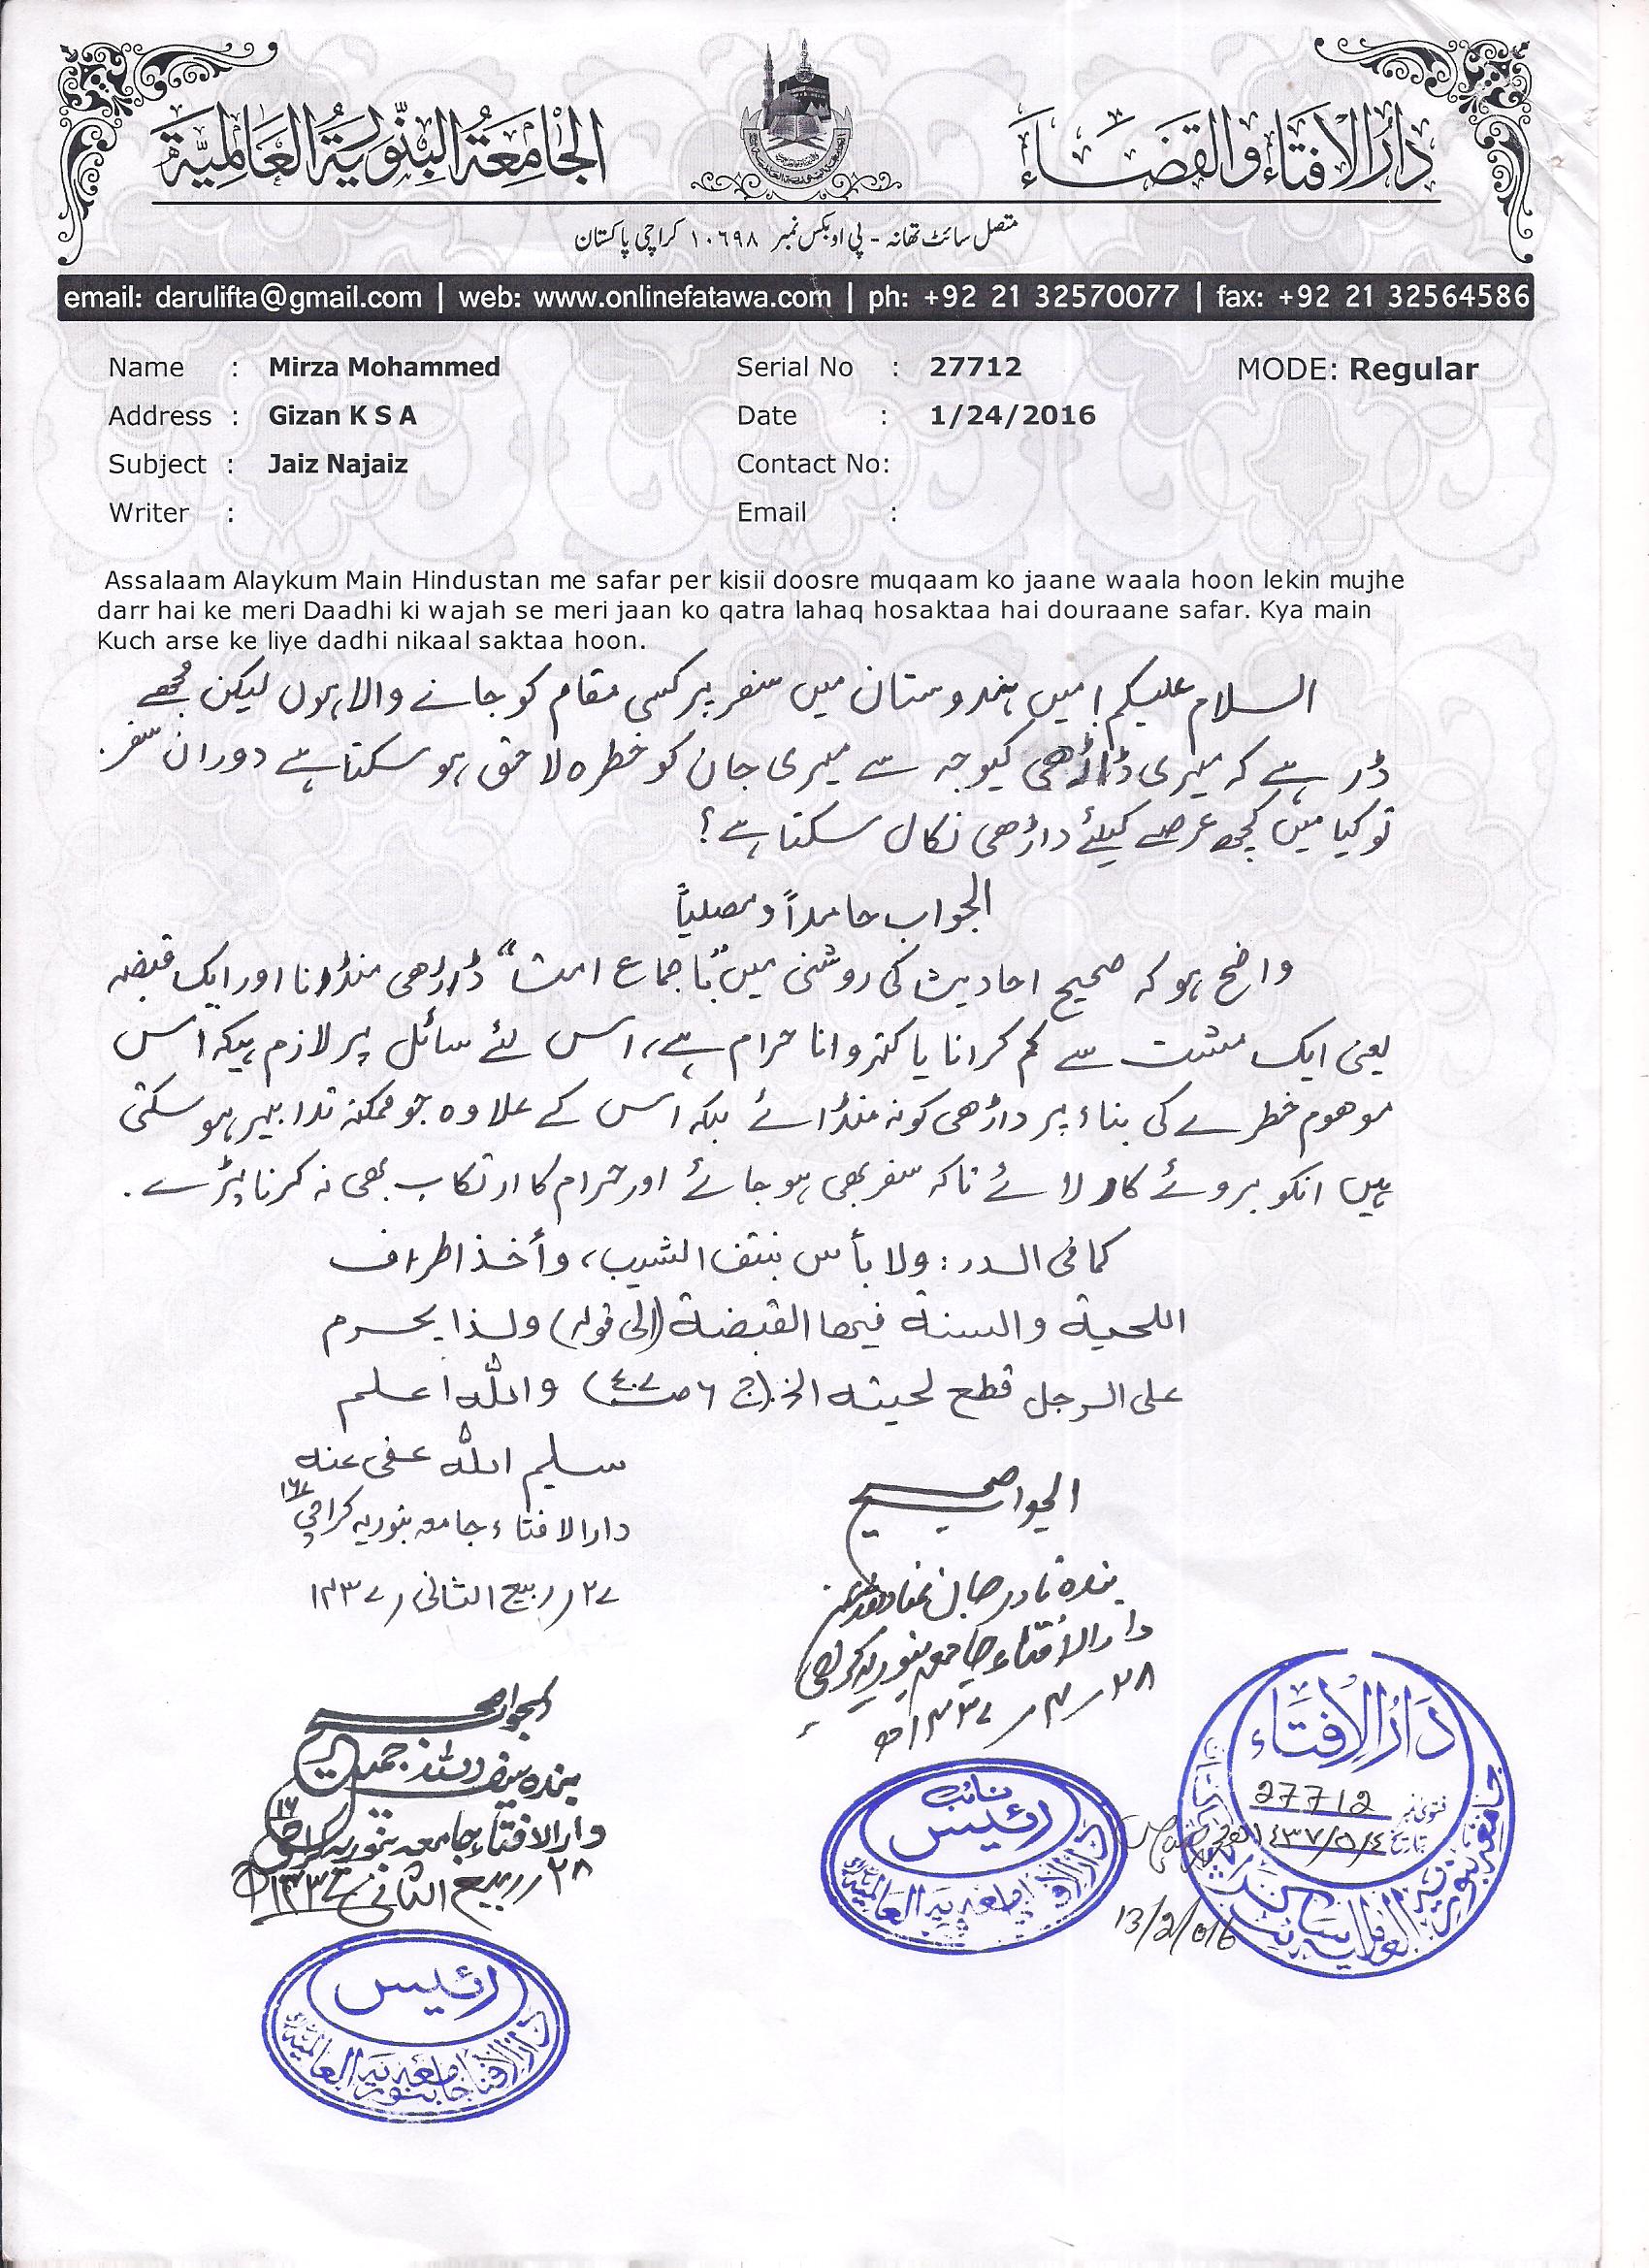 دَارُ الْإِفْتَاء وَالْقَضَاء
الْجَامِعَةُ الْبِنُّورِيَّةُ الْعَالَمِيَّة
متصل سائٹ تھانہ - پی او بکس نمبر ۱۰۶۹۸ کراچی پاکستان
email: darulifta@gmail.com | web: www.onlinefatawa.com | ph: +92 21 32570077 | fax: +92 21 32564586
Name : Mirza Mohammed Serial No : 27712 MODE: Regular
Address : Gizan K S A Date : 1/24/2016
Subject : Jaiz Najaiz Contact No:
Writer : Email :
Assalaam Alaykum Main Hindustan me safar per kisii doosre muqaam ko jaane waala hoon lekin mujhe
darr hai ke meri Daadhi ki wajah se meri jaan ko qatra lahaq hosaktaa hai douraane safar. Kya main
Kuch arse ke liye dadhi nikaal saktaa hoon.
السلام علیکم! میں ہندوستان میں سفر پر کسی مقام کو جانے والا ہوں لیکن مجھے
ڈر ہے کہ میری ڈاڑھی کیوجہ سے میری جان کو خطرہ لاحق ہو سکتا ہے دوران سفر.
تو کیا میں کچھ عرصے کیلئے داڑھی نکال سکتا ہے؟
الجواب حامداً ومصلیاً
واضح ہو کہ صحیح احادیث کی روشنی میں "باجماع امت" ڈاڑھی منڈانا اور ایک قبضہ
یعنی ایک مشت سے کم کرانا یا کتروانا حرام ہے، اس لئے سائل پر لازم ہیکہ اس
موھوم خطرے کی بناء پر داڑھی کو نہ منڈائے بلکہ اس کے علاوہ جو ممکنہ تدابیر ہو سکتی
ہیں انکو بروئے کار لائے تاکہ سفر بھی ہو جائے اور حرام کا ارتکاب بھی نہ کرنا پڑے.
کما فی الدر: ولا بأس بنتف الشیب، وأخذ اطراف
اللحیة والسنة فیھا القبضة (الی قوله) ولذا یحرم
علی الرجل قطع لحیته الخ. (ج ۶ ص ۴۰۷) واللہ اعلم
سلیم اللہ عفی عنه
دارالافتاء جامعہ بنوریہ کراچی ۱۶
۲۷ ربیع الثانی ۱۴۳۷
الجواب صحیح
بندہ نادر جان
دارالافتاء جامعہ بنوریہ کراچی
۲۸ / ۴ / ۱۴۳۷ھ
الجواب صحیح
بندہ سیف اللہ جمیل
دارالافتاء جامعہ بنوریہ کراچی ۱۶
۲۸ ربیع الثانی ۱۴۳۷ھ
نائب
رئیس
دارالافتاء جامعہ بنوریہ العالمیہ
دَارُ الْإِفْتَاء
فتویٰ نمبر 27712
تاریخ ١٤٣٧/٥/٤
جامعہ بنوریہ العالمیہ
13/2/016
رئیس
دارالافتاء جامعہ بنوریہ العالمیہ